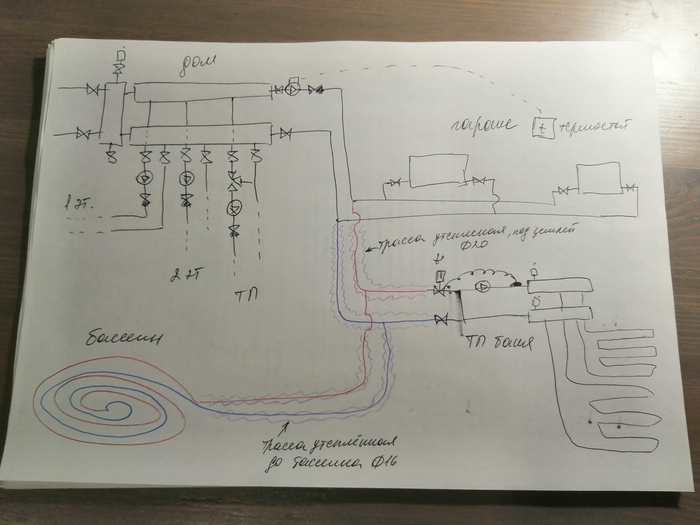 дом
гараж
t термостат
1 эт.
трасса утепленная, под землей
Ф20
2 эт
ТП
t
ТП баня
бассейн
трасса утеплённая
до бассейна Ф16